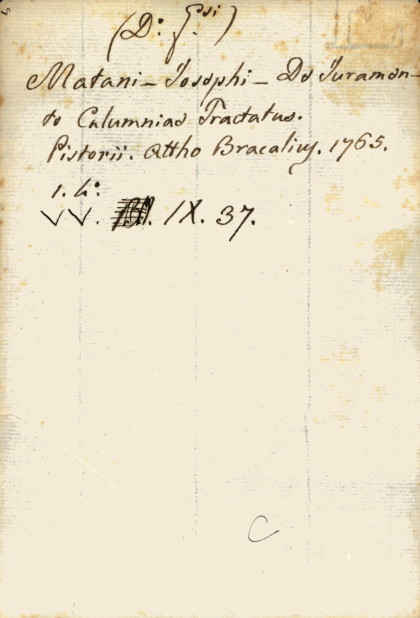 (D: G.si)
Matani - Josephi - De Juramen-
to Calumniae Tractatus.
Pistorii. Attho Bracalius. 1765.
1. 4:
VV. IX. 37.
C